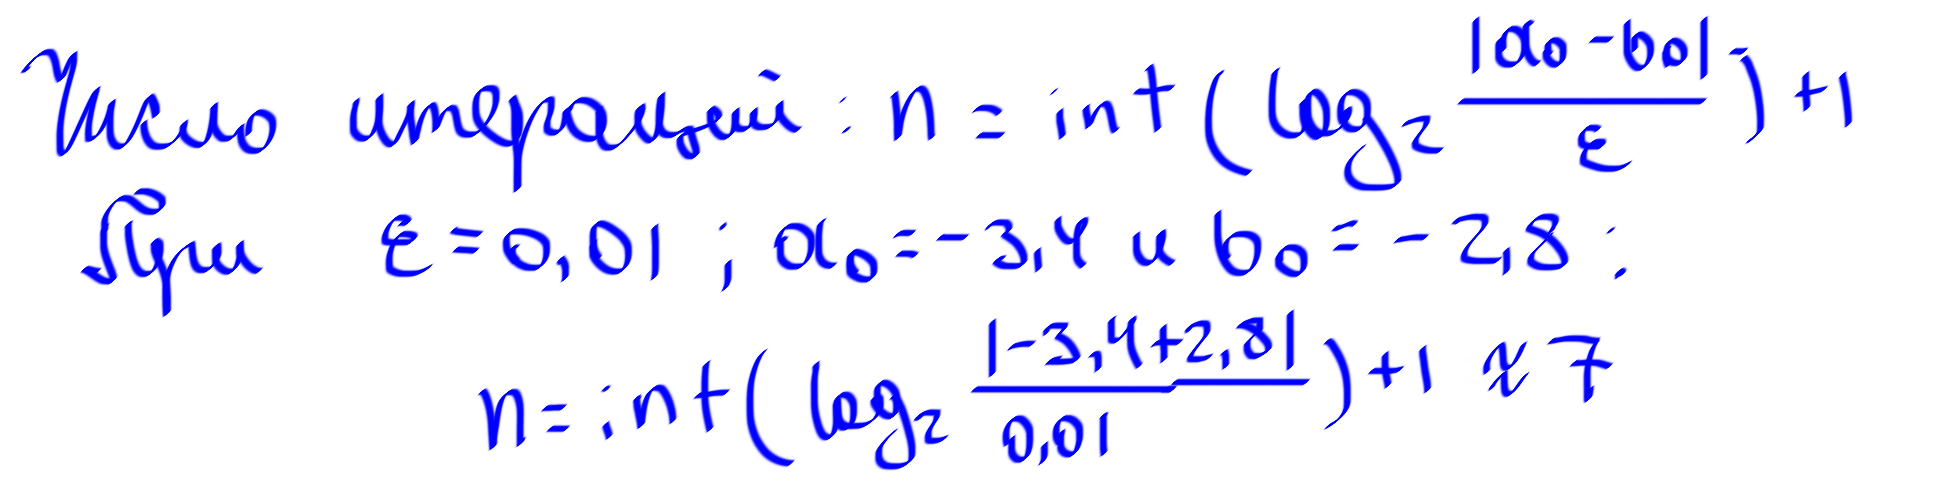 Число итераций: n = int(log₂ |a₀ - b₀| / ε) + 1
При ε = 0,01 ; a₀ = -3,4 и b₀ = -2,8 :
n = int(log₂ |-3,4+2,8| / 0,01) + 1 ≈ 7